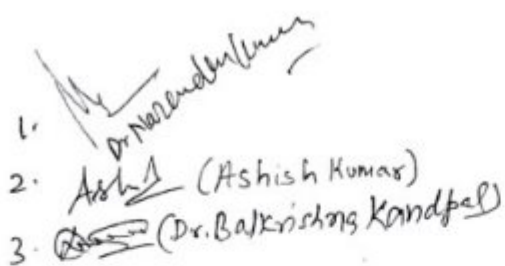 1. Dr Narendra Kumar
2. Ash (Ashish Kumar)
3. (Dr. Balkrishna Kandpal)